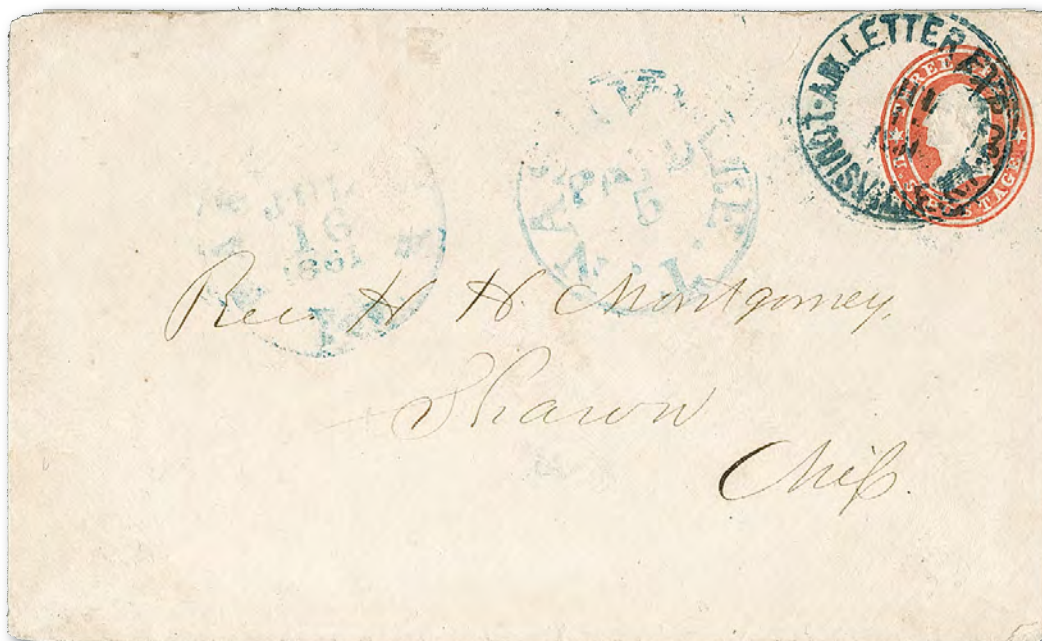 AM. LETTER EXP. CO.
LOUISVILLE, KY.
THREE CENTS
U.S. POSTAGE
NASHVILLE
PAID
5
16
1861
Rev. H H Montgomery,
Sharon
Miſs.